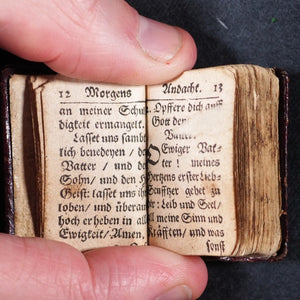 12 Morgens
an meiner Schul
digkeit ermangelt.
Lasset uns samt
lich benedeyen / de
Vatter / und de
Sohn / und den H
Geist: lasset uns ih
loben / und überau
hoch erheben in all
Ewigkeit / Amen.
Andacht. 13
Opffere dich auff
Gott den
Vatter.
O Ewiger Vat-
ter! meines
Hertzens erster Lieb-
Seufftzer gehet zu
: Leib und Seel /
l meine Sinn und
Kräfften / und was
sonst